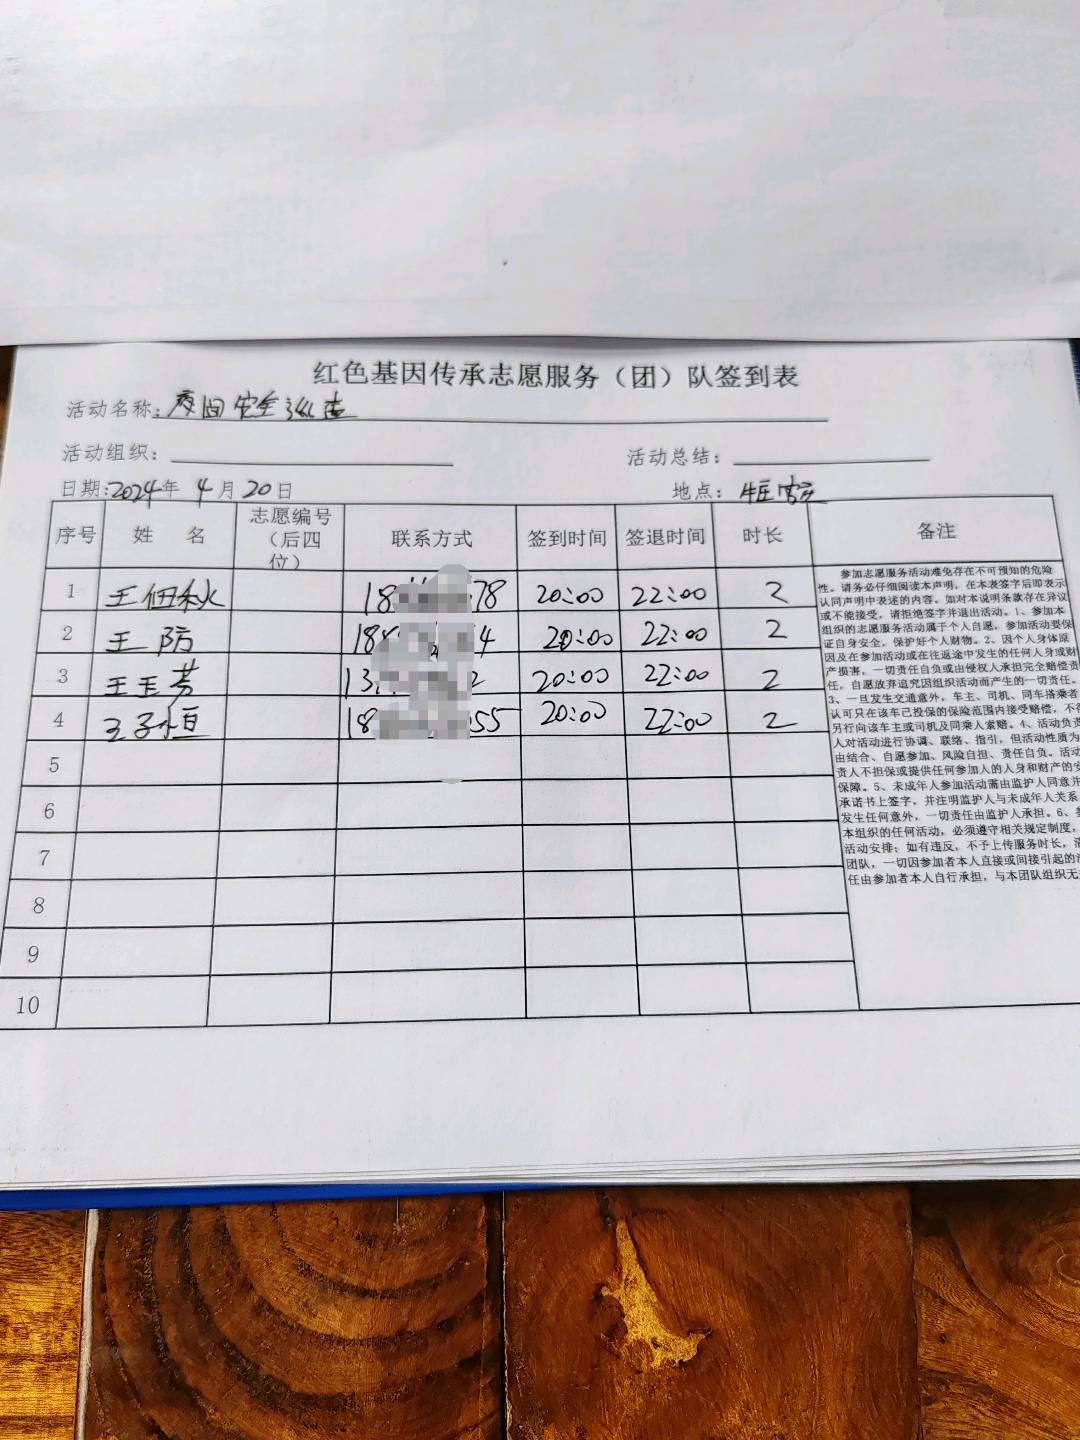 红色基因传承志愿服务（团）队签到表
活动名称：夜间安全巡查
活动组织：
活动总结：
日期：2024年 4月20日
地点：
序号 姓 名 志愿编号（后四位） 联系方式 签到时间 签退时间 时长 备注
1 王伍秋 18 78 20:00 22:00 2
2 王防 18 4 20:00 22:00 2
3 王玉芳 13 2 20:00 22:00 2
4 王子恒 18 55 20:00 22:00 2
5
6
7
8
9
10
参加志愿服务活动难免存在不可预知的危险
性。请务必仔细阅读本声明，在本表签字后即表示
认同声明中表述的内容。如对本说明条款存在异议
或不能接受，请拒绝签字并退出活动。1、参加本
组织的志愿服务活动属于个人自愿，参加活动要保
证自身安全，保护好个人财物。2、因个人身体原
因及在参加活动或在往返途中发生的任何人身或财
产损害，一切责任自负或由侵权人承担完全赔偿责
任，自愿放弃追究因组织活动而产生的一切责任。
3、一旦发生交通意外，车主、司机、同车搭乘者
认可只在该车已投保的保险范围内接受赔偿，不得
另行向该车主或司机及同乘人索赔。4、活动负责
人对活动进行协调、联络、指引，但活动性质为
由结合、自愿参加、风险自担、责任自负。活动
责人不担保或提供任何参加人的人身和财产的安
保障。5、未成年人参加活动需由监护人同意并
承诺书上签字，并注明监护人与未成年人关系
发生任何意外，一切责任由监护人承担。6、参
本组织的任何活动，必须遵守相关规定制度，
活动安排；如有违反，不予上传服务时长，清
团队，一切因参加者本人直接或间接引起的
任由参加者本人自行承担，与本团队组织无